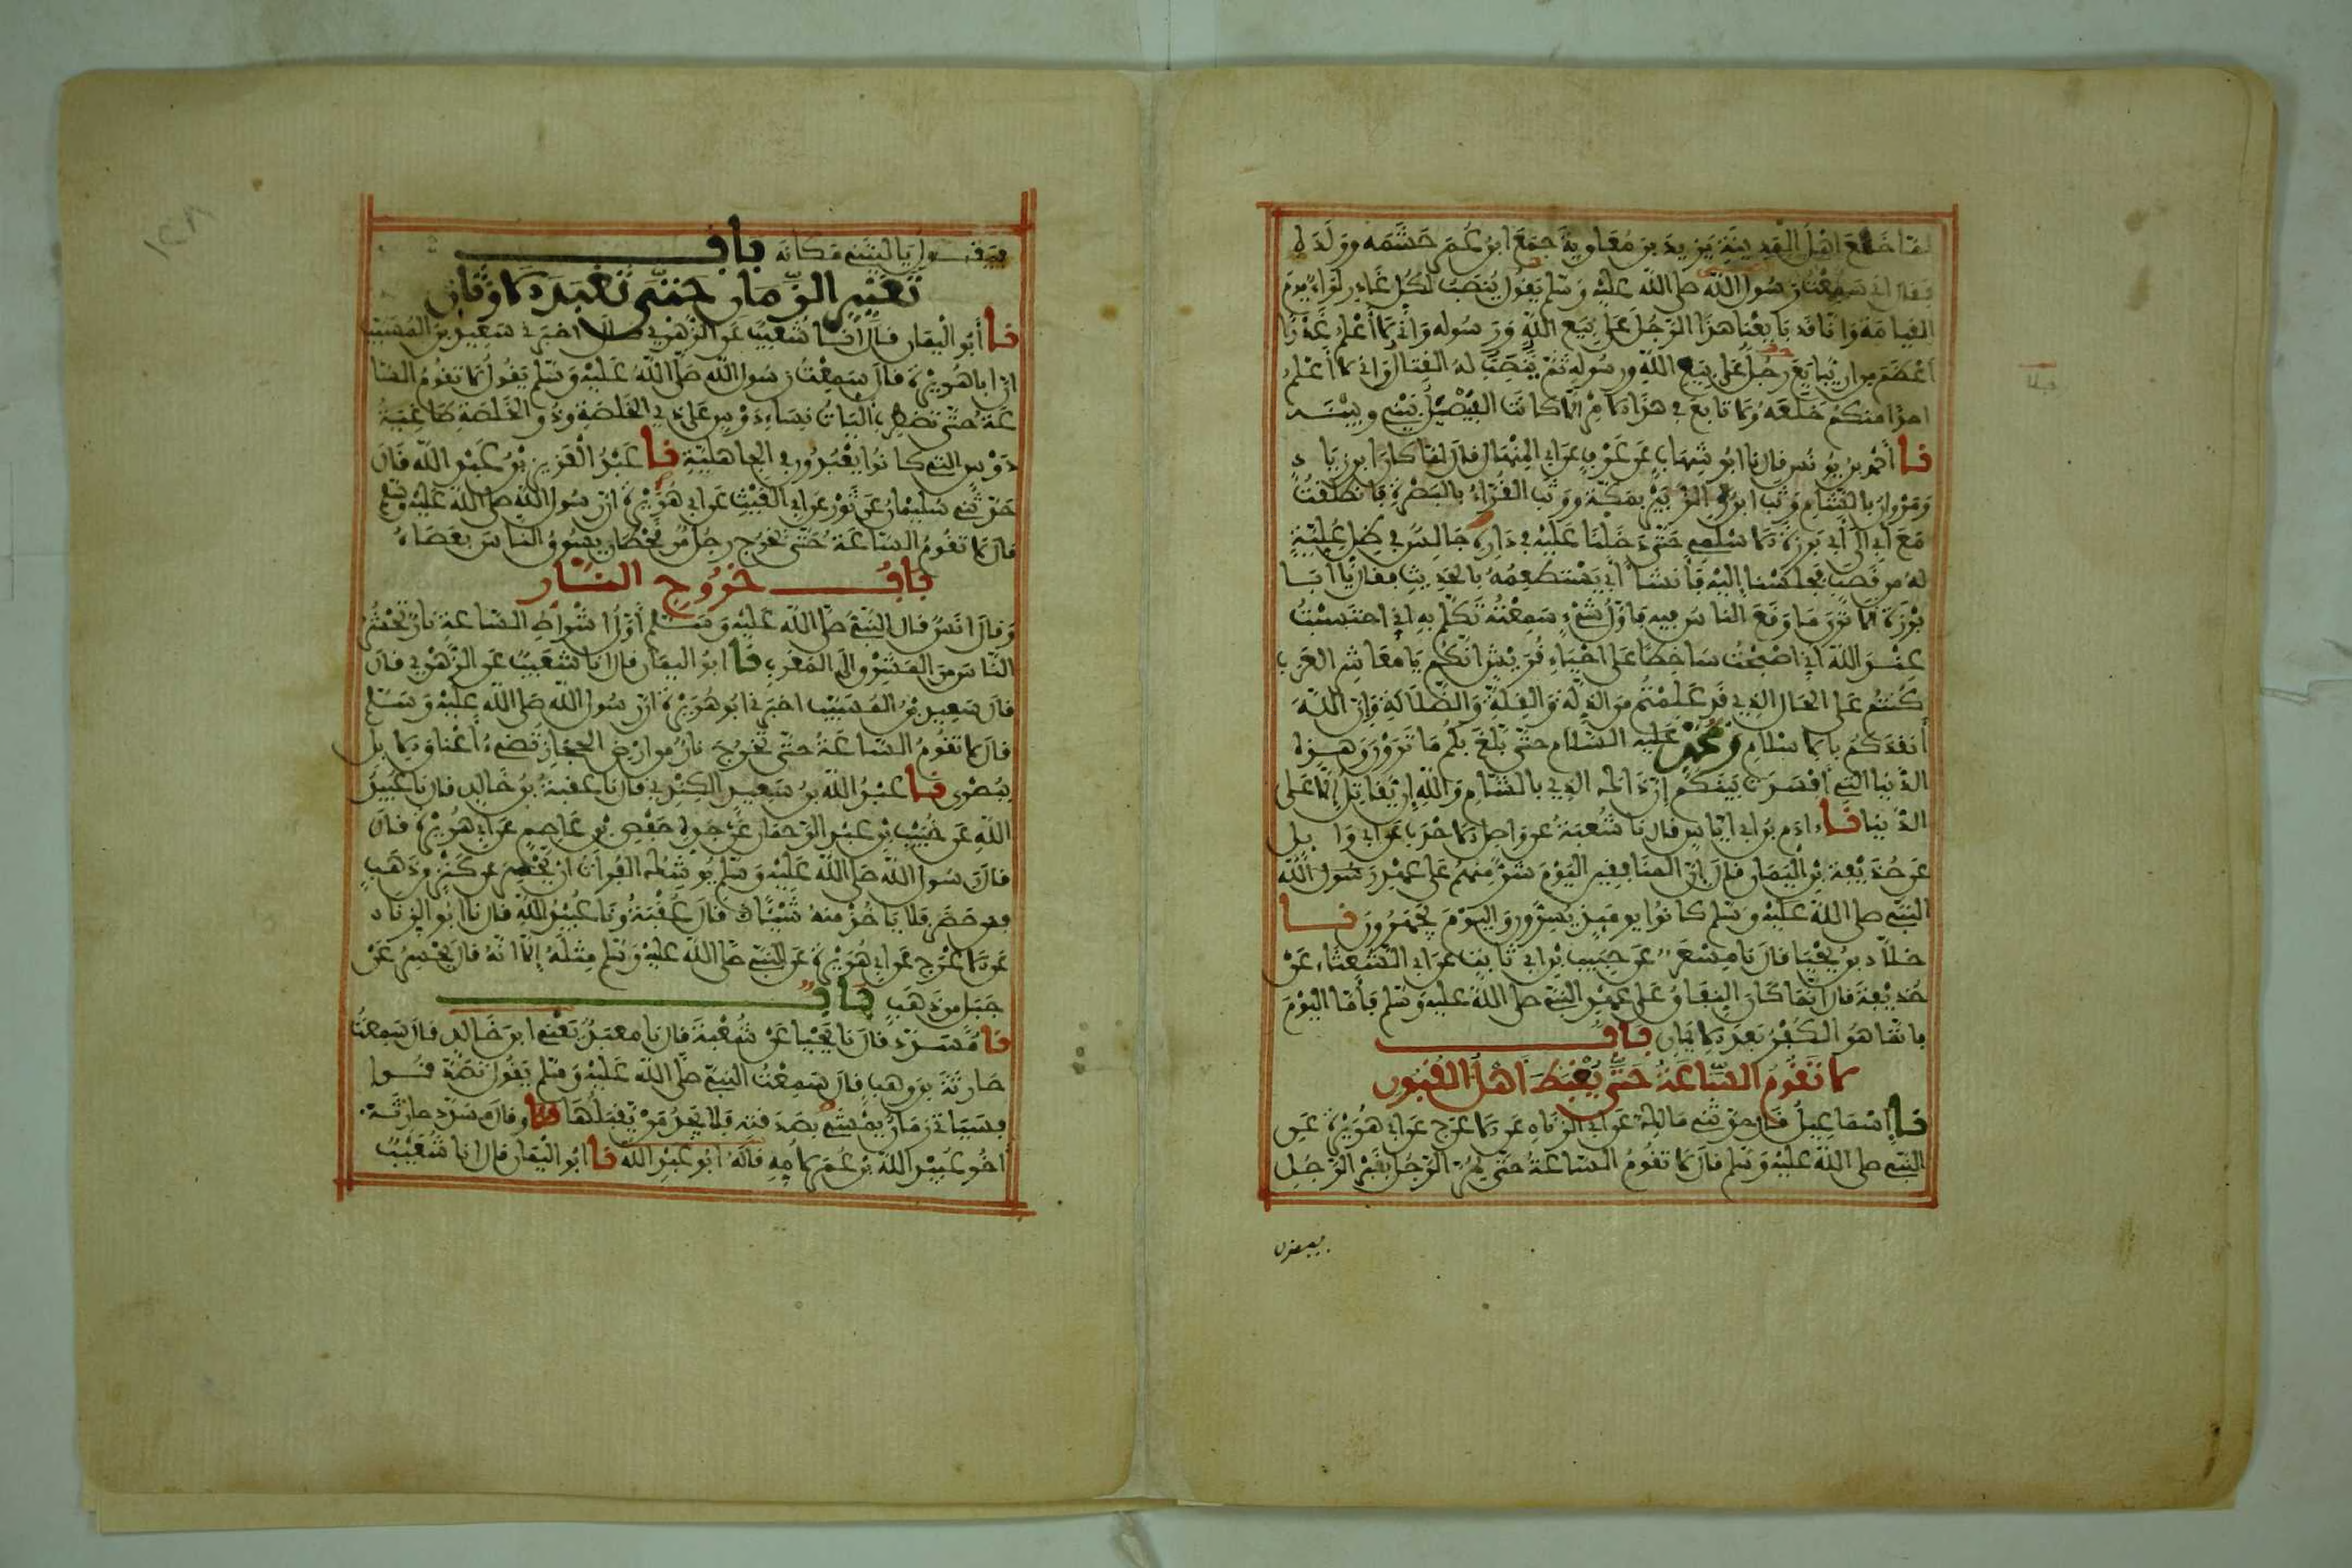 لما خلع اهل المدينة يزيد بن معاوية جمع ابن عمر حشمه وولده
فقال اني سمعت رسول الله صلى الله عليه وسلم يقول ينصب لكل غادر لواء يوم
القيامة وانا قد بايعنا هذا الرجل على بيع الله ورسوله واني لا أعلم غدرا
أعظم من ان يبايع رجل على بيع الله ورسوله ثم ينصب له القتال واني لا أعلم
احدا منكم خلعه ولا تابع في هذا الامر الا كانت الفيصل بيني وبينه
نا أحمد بن يونس قال نا ابو شهاب عن عوف عن ابي المنهال قال لما كان ابن زياد
ومروان بالشام وثب ابن الزبير بمكة ووثب القراء بالبصرة فانطلقت
مع أبي الى أبي برزة الاسلمي حتى دخلنا عليه في داره جالس في ظل علية
له من قصب فجلسنا إليه فأنشأ أبي يستطعمه بالحديث فقال يا أبا
برزة الا ترى ما وقع الناس فيه فاول شيء سمعته تكلم به اني احتسبت
عند الله اني اصبحت ساخطا على احياء قريش انكم يا معاشر العرب
كنتم على الحال الذي قد علمتم من الذلة والقلة والضلالة وإن الله
أنقذكم بالاسلام وبمحمد عليه السلام حتى بلغ بكم ما ترون وهذه
الدنيا التي أفسدت بينكم إن ذاك الذي بالشام والله إن يقاتل إلا على
الدنيا نا ادم بن ابي اياس قال نا شعبة عن واصل الاحدب عن ابي وايل
عن حذيفة بن اليمان قال إن المنافقين اليوم شر منهم على عهد رسول الله
النبي صلى الله عليه وسلم كانوا يوميذ يسرون واليوم يجهرون نا
خلاد بن يحيى قال نا مسعر عن حبيب بن ابي ثابت عن ابي الشعثاء عن
حذيفة قال انما كان النفاق على عهد النبي صلى الله عليه وسلم فأما اليوم
فانما هو الكفر بعد الايمان باب
لا تقوم الساعة حتى يغبط أهل القبور
نا إسماعيل قال حدثني مالك عن ابي الزناد عن الاعرج عن ابي هريرة عن
النبي صلى الله عليه وسلم قال لا تقوم الساعة حتى يمر الرجل بقبر الرجل
فيقول
فيقول يا ليتني مكانه باب
تغيير الزمان حتى تعبد الاوثان
نا أبو اليمان قال انا شعيب عن الزهري قال اخبرني سعيد بن المسيب
ان ابا هريرة قال سمعت رسول الله صلى الله عليه وسلم يقول لا تقوم السا
عة حتى تضطرب أليات نساء دوس على ذي الخلصة وذو الخلصة طاغية
دوس التي كانوا يعبدون في الجاهلية نا عبد العزيز بن عبد الله قال
حدثني سليمان عن ثور عن ابي الغيث عن ابي هريرة ان رسول الله صلى الله عليه وسلم
قال لا تقوم الساعة حتى يخرج رجل من قحطان يسوق الناس بعصاه
باب خروج النار
وقال انس قال النبي صلى الله عليه وسلم أول اشراط الساعة نار تحشر
الناس من المشرق الى المغرب نا ابو اليمان قال انا شعيب عن الزهري قال
قال سعيد بن المسيب اخبرني ابو هريرة ان رسول الله صلى الله عليه وسلم
قال لا تقوم الساعة حتى تخرج نار من ارض الحجاز تضيء أعناق الابل
ببصرى نا عبد الله بن سعيد الكندي قال نا عقبة بن خالد قال نا عبيد
الله عن خبيب بن عبد الرحمان عن جده حفص بن عاصم عن ابي هريرة قال
قال رسول الله صلى الله عليه وسلم يوشك الفرات ان يحسر عن كنز من ذهب
فمن حضر فلا ياخذ منه شيئا قال عقبة ونا عبيد الله قال نا ابو الزناد
عن الاعرج عن ابي هريرة عن النبي صلى الله عليه وسلم مثله إلا انه قال يحسر عن
جبل من ذهب باب
نا مسدد قال نا يحيى عن شعبة قال نا معبد يعني ابن خالد قال سمعت
حارثة بن وهب قال سمعت النبي صلى الله عليه وسلم يقول تصدقوا
فسياتي زمان يمشي بصدقته فلا يجد من يقبلها وقال مسدد حارثة
أخو عبيد الله بن عمر لامه قاله ابو عبد الله نا ابو اليمان قال انا شعيب